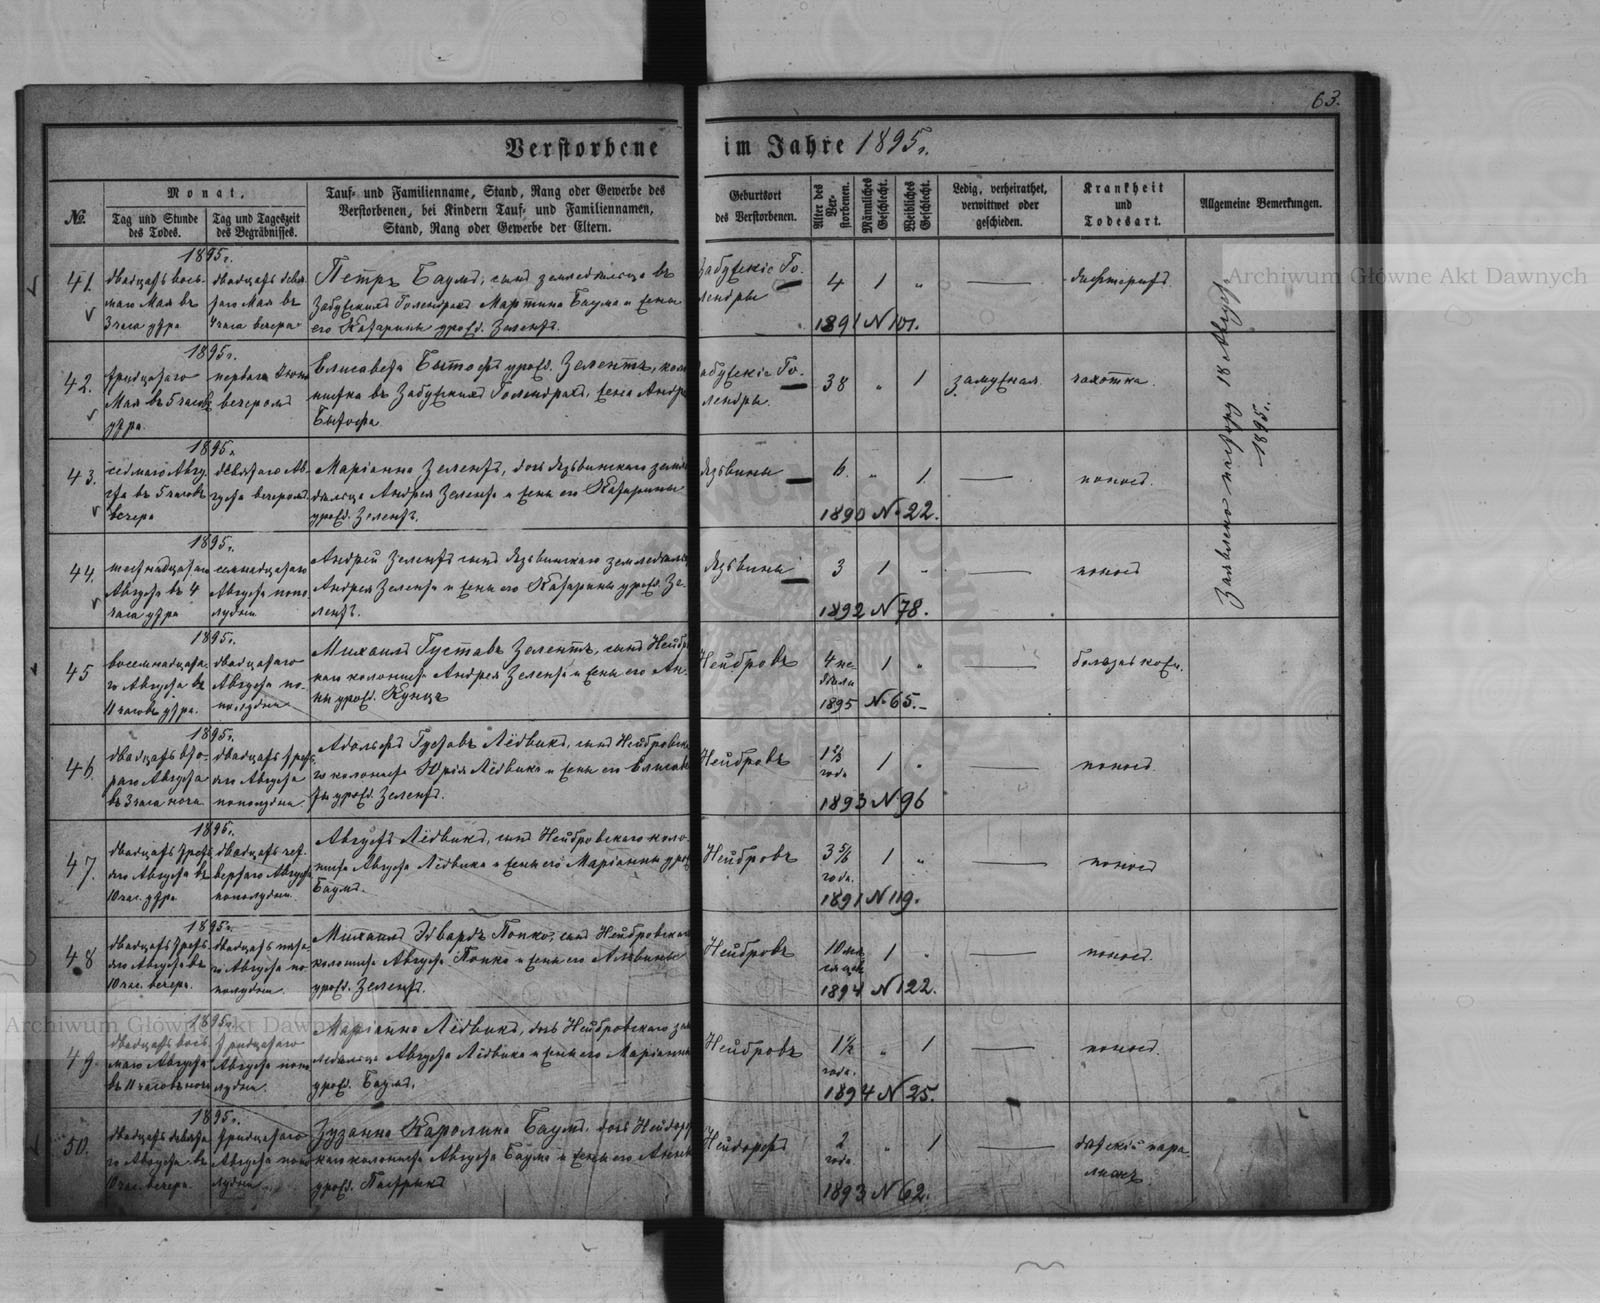 63.
Verstorbene im Jahre 1895 г.
№.
Monat.
Tag und Stunde des Todes.
Tag und Tageszeit des Begräbnisses.
Tauf- und Familienname, Stand, Rang oder Gewerbe des
Verstorbenen, bei Kindern Tauf- und Familiennamen,
Stand, Rang oder Gewerbe der Eltern.
Geburtsort
des Verstorbenen.
Alter des Verstorbenen.
Männliches Geschlecht.
Weibliches Geschlecht.
Ledig, verheirathet,
verwittwet oder
geschieden.
Krankheit
und
Todesart.
Allgemeine Bemerkungen.
1895 г.
41.
двадцать вось-
маго Мая въ
3 часа утра
двадцать девя-
таго Мая въ
4 часа вечера
Петръ Баумъ, сынъ земледѣльца въ
Забужскихъ Голендрахъ Мартина Баума и жены
его Катарины урожд. Зелентъ.
Забужскіе Го-
лендры
4
1
"
дифтеритъ
1891 N 101.
1895 г.
42.
тридцатаго
Мая въ 5 часовъ
утра
перваго Іюня
вечеромъ
Елисавета Бытофъ урожд. Зелентъ, коло-
нистка въ Забужскихъ Голендрахъ, жена Андрея
Бытофа
Забужскіе Го-
лендры.
38
"
1
замужняя
чахотка.
1895 г.
43.
седьмаго Авгу-
ста въ 5 часовъ
вечера
девятаго Ав-
густа вечеромъ
Маріанна Зелентъ, дочь Язьвинскаго земле-
дѣльца Андрея Зелента и жены его Катарины
урожд. Зелентъ.
Язьвины
6.
"
1
поносъ.
1890 N 22.
1895 г.
44.
шестнадцатаго
Августа въ 4
часа утра
семнадцатаго
Августа попо-
лудни
Андрей Зелентъ сынъ Язьвинскаго земледѣльца
Андрея Зелента и жены его Катарины урожд. Зе-
лентъ.
Язьвины
3
1
"
поносъ
1892 N 78.
1895 г.
45
восемнадцата-
го Августа въ
11 часовъ утра.
двадцатаго
Августа по-
полудни
Михаилъ Густавъ Зелентъ, сынъ Нейбров-
скаго колониста Андрея Зелента и жены его Ан-
ны урожд. Кунцъ
Нейбровъ
4 не
дѣли
1
"
1895 N 65.
1895 г.
46.
двадцать вто-
раго Августа
въ 3 часа ночи
двадцать треть-
яго Августа
пополудни
Адольфъ Густавъ Лѣдвихъ, сынъ Нейбровска-
го колониста Юрія Лѣдвиха и жены его Елисаве-
ты урожд. Зелентъ.
Нейбровъ
года
1
"
поносъ.
1893 N 96
1895 г.
47.
двадцать треть-
яго Августа въ
10 час. утра
двадцать чет-
вертаго Августа
пополудни.
Августъ Лѣдвихъ, сынъ Нейбровскаго коло-
ниста Августа Лѣдвиха и жены его Маріанны урожд.
Баумъ.
Нейбровъ
3 5/6
года.
1
"
поносъ
1891 N 119.
1895 г.
48
двадцать треть-
яго Августа въ
10 час. вечера.
двадцать пята-
го Августа по-
полудни.
Михаилъ Эдвардъ Попко, сынъ Нейбровскаго
колониста Августа Попко и жены его Альвины
урожд. Зелентъ.
Нейбровъ
10 мѣ
сяцевъ
1
"
поносъ.
1894 N 122.
1895 г.
49.
двадцать вось-
маго Августа
въ 11 часовъ ночи
тридцатаго
Августа попо-
лудни.
Маріанна Лѣдвихъ, дочь Нейбровскаго зем-
ледѣльца Августа Лѣдвиха и жены его Маріанны
урожд. Баумъ.
Нейбровъ
1 1/2
года.
"
1
поносъ.
1894 N 25.
1895 г.
50.
двадцать девята-
го Августа въ
10 час. вечера.
тридцатаго
Августа попо-
лудни.
Зузанна Каролина Баумъ, дочь Нейдорф-
скаго колониста Августа Баума и жены его Анны
урожд.
Нейдорфъ
2
года
"
1
дѣтскій пара-
личъ.
1893 N 62.
Заявлено пастору 18 Августа
1895 г.
Archiwum Główne Akt Dawnych
Archiwum Główne Akt Dawnych